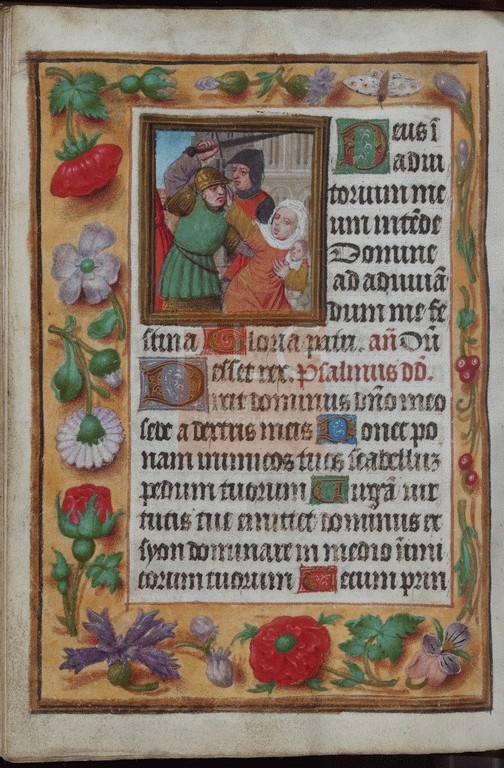 Deus ī
adiu
torium me
um intēde
Domine
ad adiuuā
dum me fe
stina Gloria patri. añ Dū
esset rex. Psalmus dd̄.
Dixit dominus dño meo
sede a dextris meis Donec po
nam inimicos tuos scabellum
pedum tuorum Uirgā uir
tutis tue emittet dominus ex
syon dominare in medio inimi
corum tuorum Tecum prin